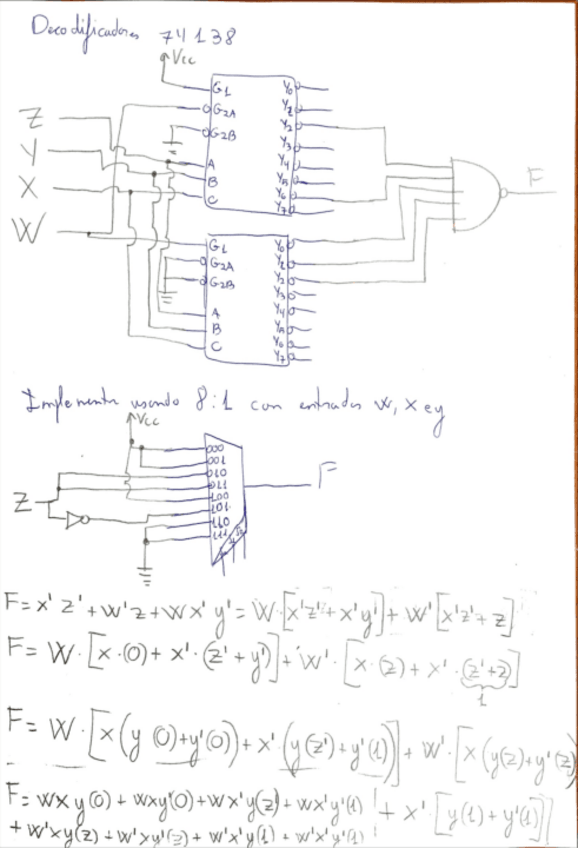 Decodificadores 74138
Vcc
G1
G2A
G2B
A
B
C
Y0
Y1
Y2
Y3
Y4
Y5
Y6
Y7
Z
Y
X
W
F
G1
G2A
G2B
A
B
C
Y0
Y1
Y2
Y3
Y4
Y5
Y6
Y7
Implementar usando 8:1 con entradas w, x e y
Vcc
000
001
010
011
100
101
110
111
Z
F
F= x' z' + w'z + w x' y' = W·[x'z'+x'y'] + W'[x'z'+z]
F= W·[x·(0)+ x'·(z'+y')] + W'·[x·(z)+ x'·(z'+z)]
1
F= W·[x(y(0)+y'(0))+ x'·(y(z')+y'(1))] + W'·[x(y(z)+y'(z)
+ x'·[y(1)+y'(1)]]
F= wxy(0) + wxy'(0) + wx'y(z) + wx'y'(1)
+ w'xy(z) + w'xy'(z) + w'x'y(1) + w'x'y'(1)